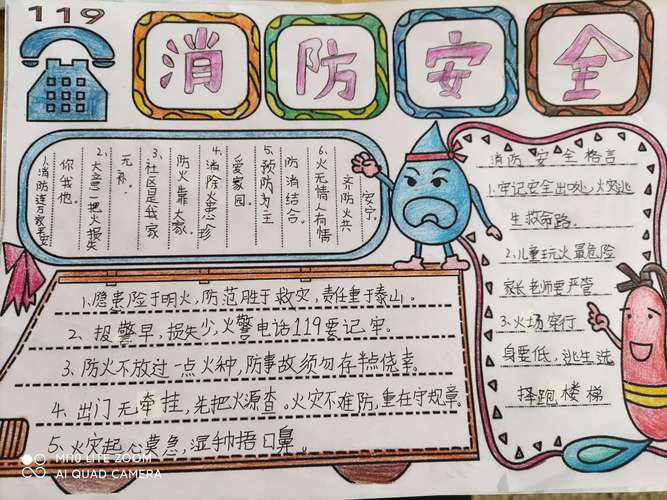 119
消防安全
1.消防连万家平安
你我他。
2.大意一把火损失
无补。
3.社区是我家
防火靠大家
4.消除火患珍
爱家园。
5.预防为主
防消结合。
6.火无情人有情
齐防火共
安宁
消防安全格言
1.牢记安全出口,火灾逃
生救命路.
2.儿童玩火最危险
家长老师要严管
3.火场穿行
身要低,逃生选
择跑楼梯
1.隐患险于明火,防范胜于救灾,责任重于泰山。
2、报警早,损失少,火警电话119要记牢。
3.防火不放过一点火种,防事故须勿存半点侥幸。
4.出门无牵挂,先把火源查。火灾不难防,重在守规章。
5.火灾起心莫急,湿手巾捂口鼻。
MI 10 LITE ZOOM
AI QUAD CAMERA